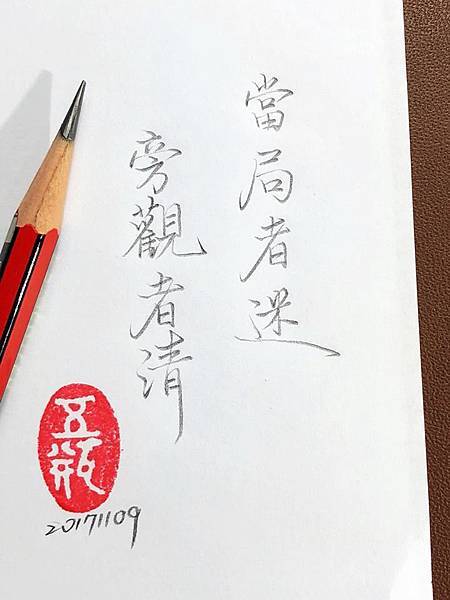 當局者迷
旁觀者清
五瓶
20171109